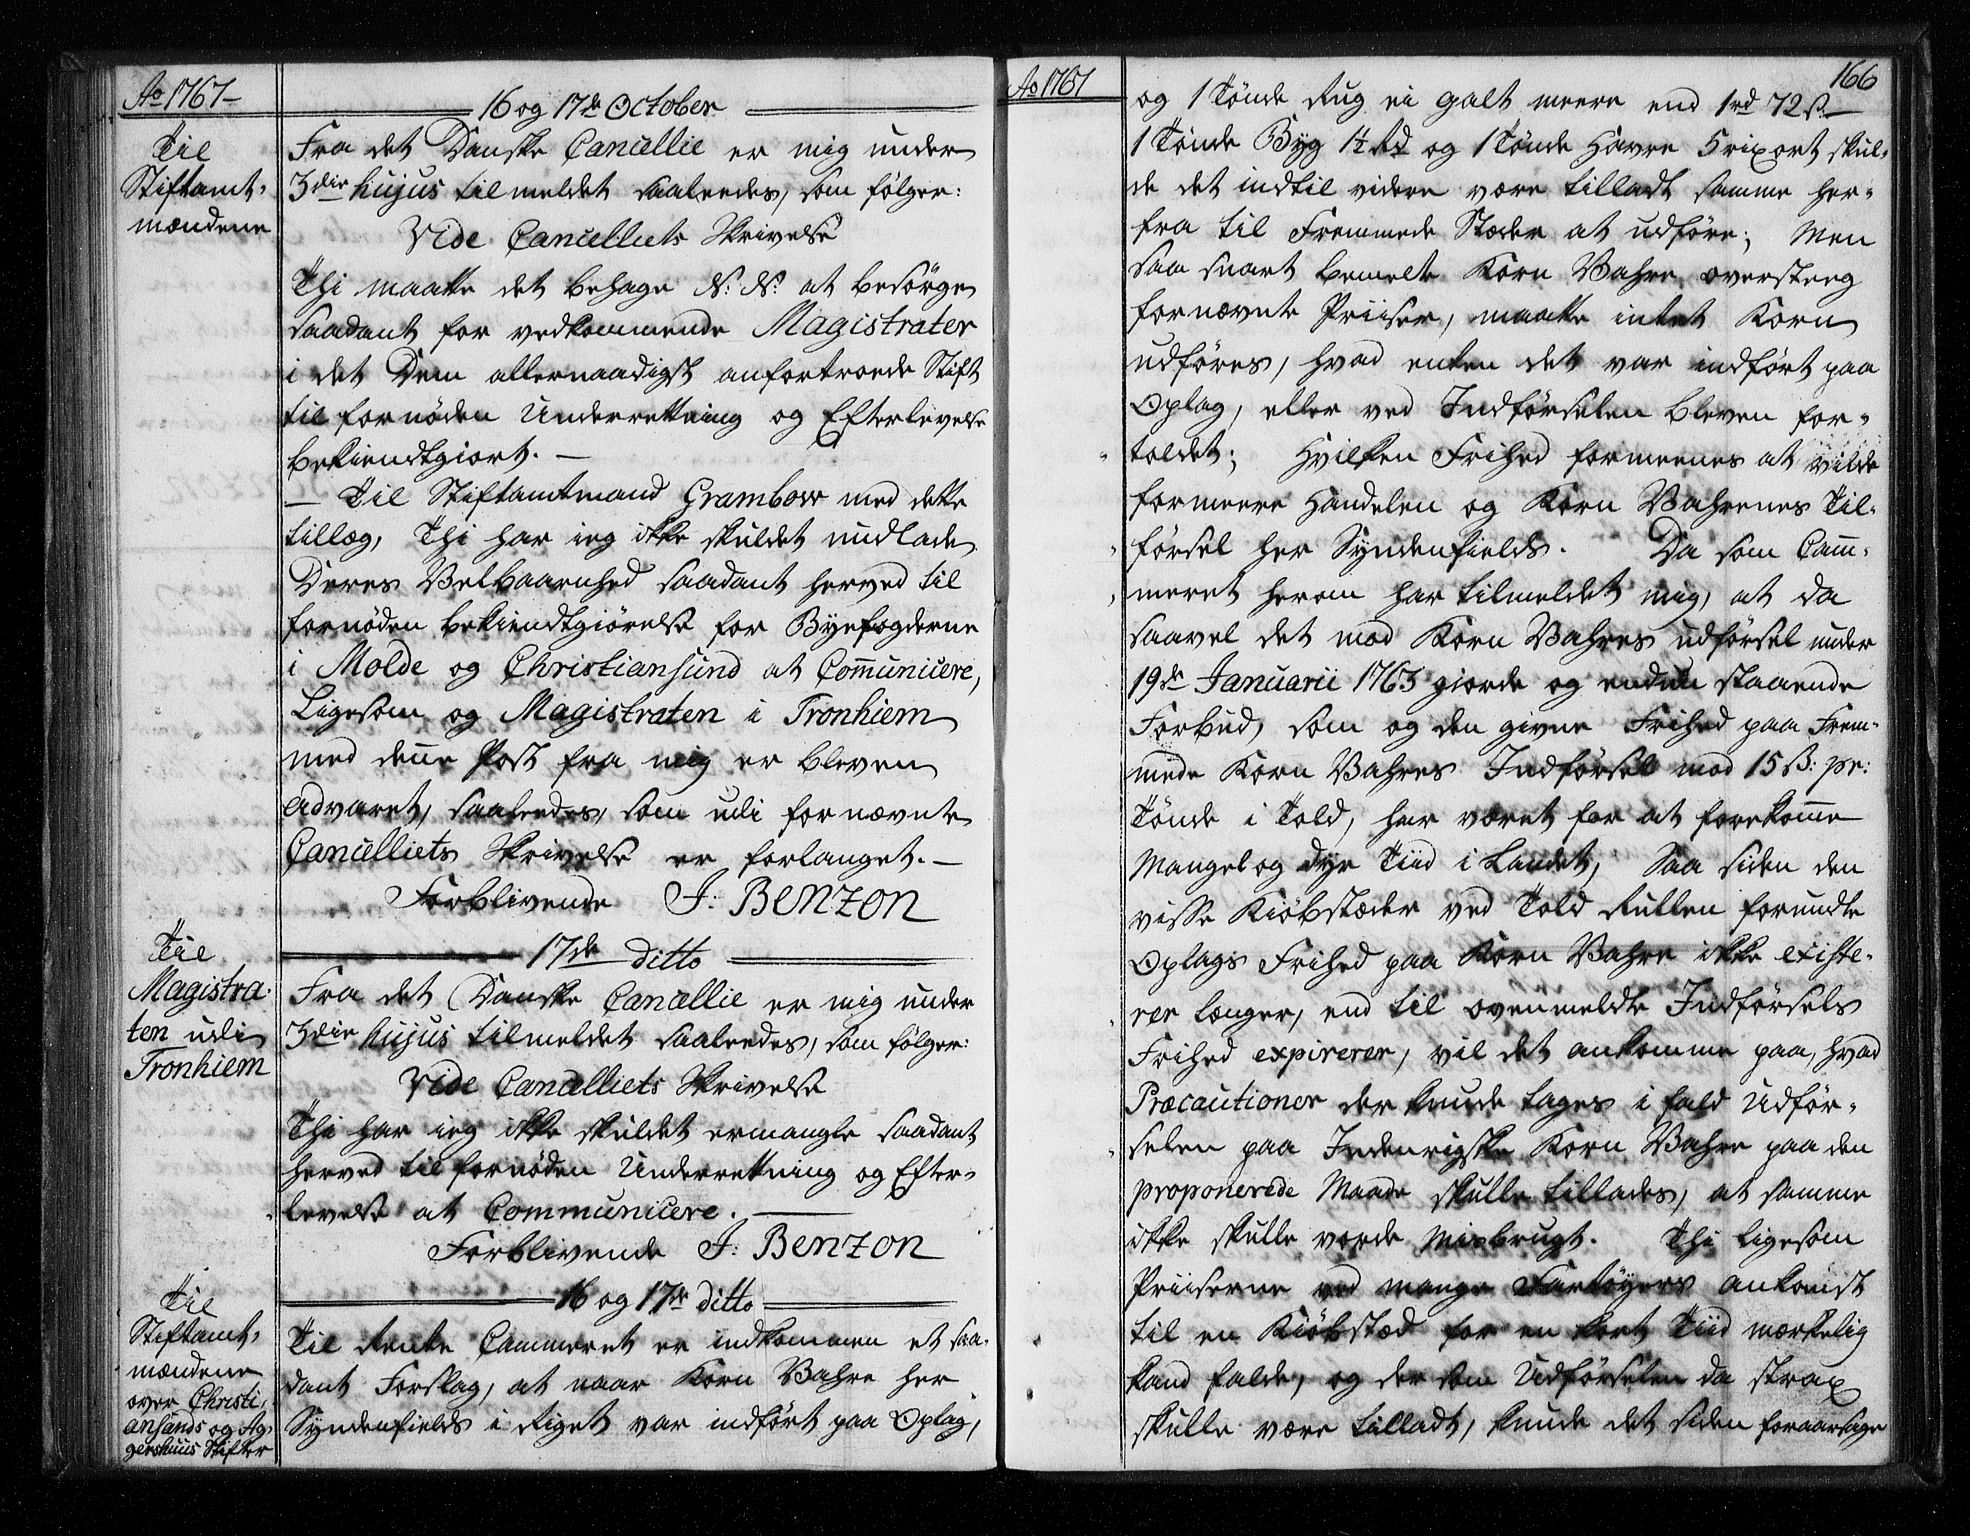 Ao 1767
16 og 17de October
Til
Stiftamt-
mændene
Fra det Danske Cancellie er mig under
3die hujus tilmeldet saaledes, som følger:
Vide Cancelliets Skrivelse
Thi maatte det behage N: N: at besørge
saadant for vedkommende Magistrater
i det Dem allernaadigst anfortroede Stift
til fornøden Underrettning og Efterlevelse
bekiendtgiort. —
— Til Stiftamtmand Grambow med dette
tillæg, Thi har ieg ikke skuldet undlade
Deres Velbaarnhed saadant herved til
fornøden bekiendtgiørelse for Byefogderne
i Molde og Christiansund at Com̅unicere,
Ligesom og Magistraten i Tronhiem
med den̅e Post fra mig er bleven
advaret, saaledes, som udi fornævnte
Cancelliets Skrivelse er forlanget. —
Forblivende J: Benzon
17de ditto
Til
Magistra-
ten udi
Tronhiem
Fra det Danske Cancellie er mig under
3die hujus tilmeldet saaledes, som følger:
Vide Cancelliets Skrivelse
Thi har ieg ikke skuldet ermangle saadant
herved til fornøden Underrettning og Efter-
levelse at Communicere.
Forblivende J: Benzon
16 og 17de ditto
Til
Stiftamt-
mændene
over Christi-
ansands og Ag-
gershuus Stifter
Til Rente Cammeret er indkommen et saa-
dant Forslag, at naar Korn Vahre her
Syndenfields i Riget var indført paa Oplag,
Ao 1767
166
og 1 Tønde Rug ei galt meere end 1rd 72 ß. —
1 Tønde Byg 1½ Rd og 1 Tønde Havre 5 rixort skul-
de det indtil videre være tilladt samme her-
fra til Fremmede Stæder at udføre; Men
saa snart bemelte Korn Vahre oversteeg
fornævnte Priiser, maatte intet Korn
udføres, hvad enten det var indført paa
Oplag, eller ved Indførselen bleven for-
toldet; Hvilken Frihed formeenes at vilde
formeere Handelen og Korn Vahrenes Til-
førsel her Syndenfields. Da som Cam̅-
meret herom har tilmeldet mig, at da
saavel det mod Korn Vahres udførsel under
19de Januarii 1763 giorde og endnu staaende
Forbud, som og den givne Frihed paa Frem-
mede Korn Vahres Indførsel mod 15 ß: pr:
Tønde i Told, har været for at forekom̅e
Mangel og dyr Tiid i Landet, Saa siden den
visse Kiøbstæder ved Told Rullen forundte
Oplags Frihed paa Korn Vahre ikke existe-
rer længer, end til ovenmeldte Indførsels
Frihed expirerer, vil det ankomme paa, hvad
Præcautioner der kunde tages i fald Udfør-
selen paa Indenrigske Korn Vahre paa den
proponerede Maade skulle tillades, at samme
ikke skulle vorde misbrugt. Thi ligesom
Priiserne ved mange Fartøyers ankomst
til en Kiøbstæd for en kort Tiid mærkelig
kand falde, og dersom Udførselen da strax
skulle være tilladt, kunde det siden foraarsage